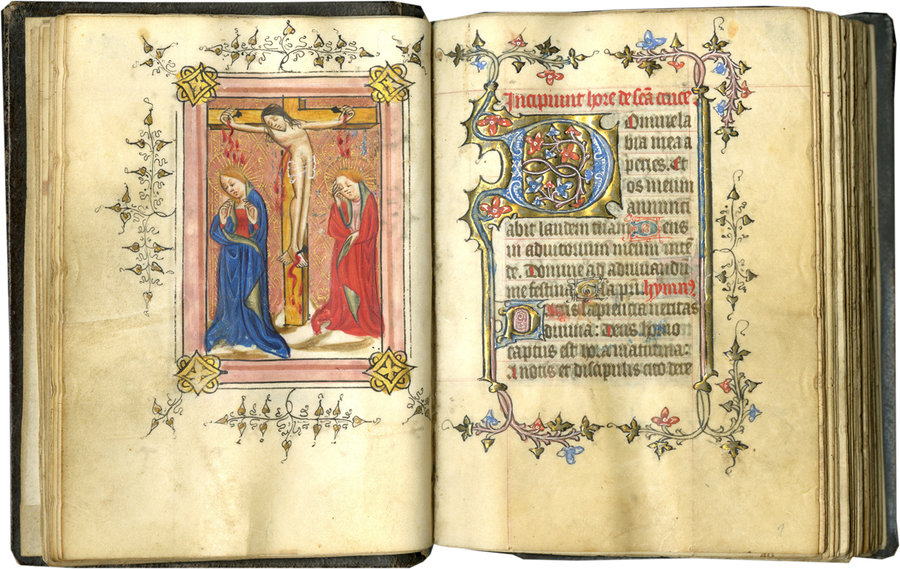 Incipiunt hore de scā cruce.
Domine la
bia mea a
peries. Et
os meum
annunci
abit laudem tuam Deus
in adiutorium meum intē
de. Domine ad adiuuandū
me festina Gla pri hymnꝰ
Patris sapientia ueritas
diuina: Deus homo
captus est hora matutina:
A notis et discipulis cito dere